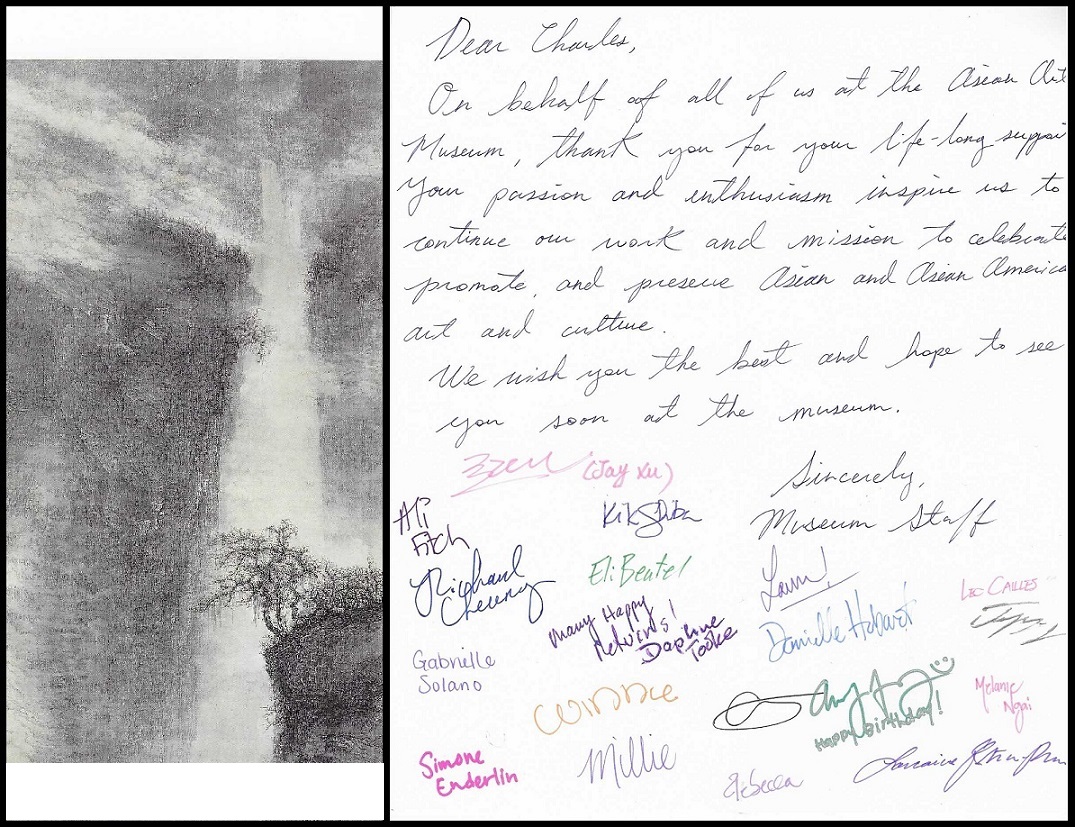 Dear Charles,
On behalf of all of us at the Asian Art
Museum, thank you for your life-long suppor
Your passion and enthusiasm inspire us to
continue our work and mission to celebrate
promote, and preserve Asian and Asian America
art and culture.
We wish you the best and hope to see
you soon at the museum.
Sincerely,
Museum Staff
(Jay Xu)
Ali
Fitch
Richard
Cheung
Eli Beutel
Many Happy
Returns!
Daphne
Tooke
Danielle
Gabrielle
Solano
Winnie
Happy Birthday!
Melanie
Ngai
Simone
Enderlin
Millie
Rebecca
Lorraine